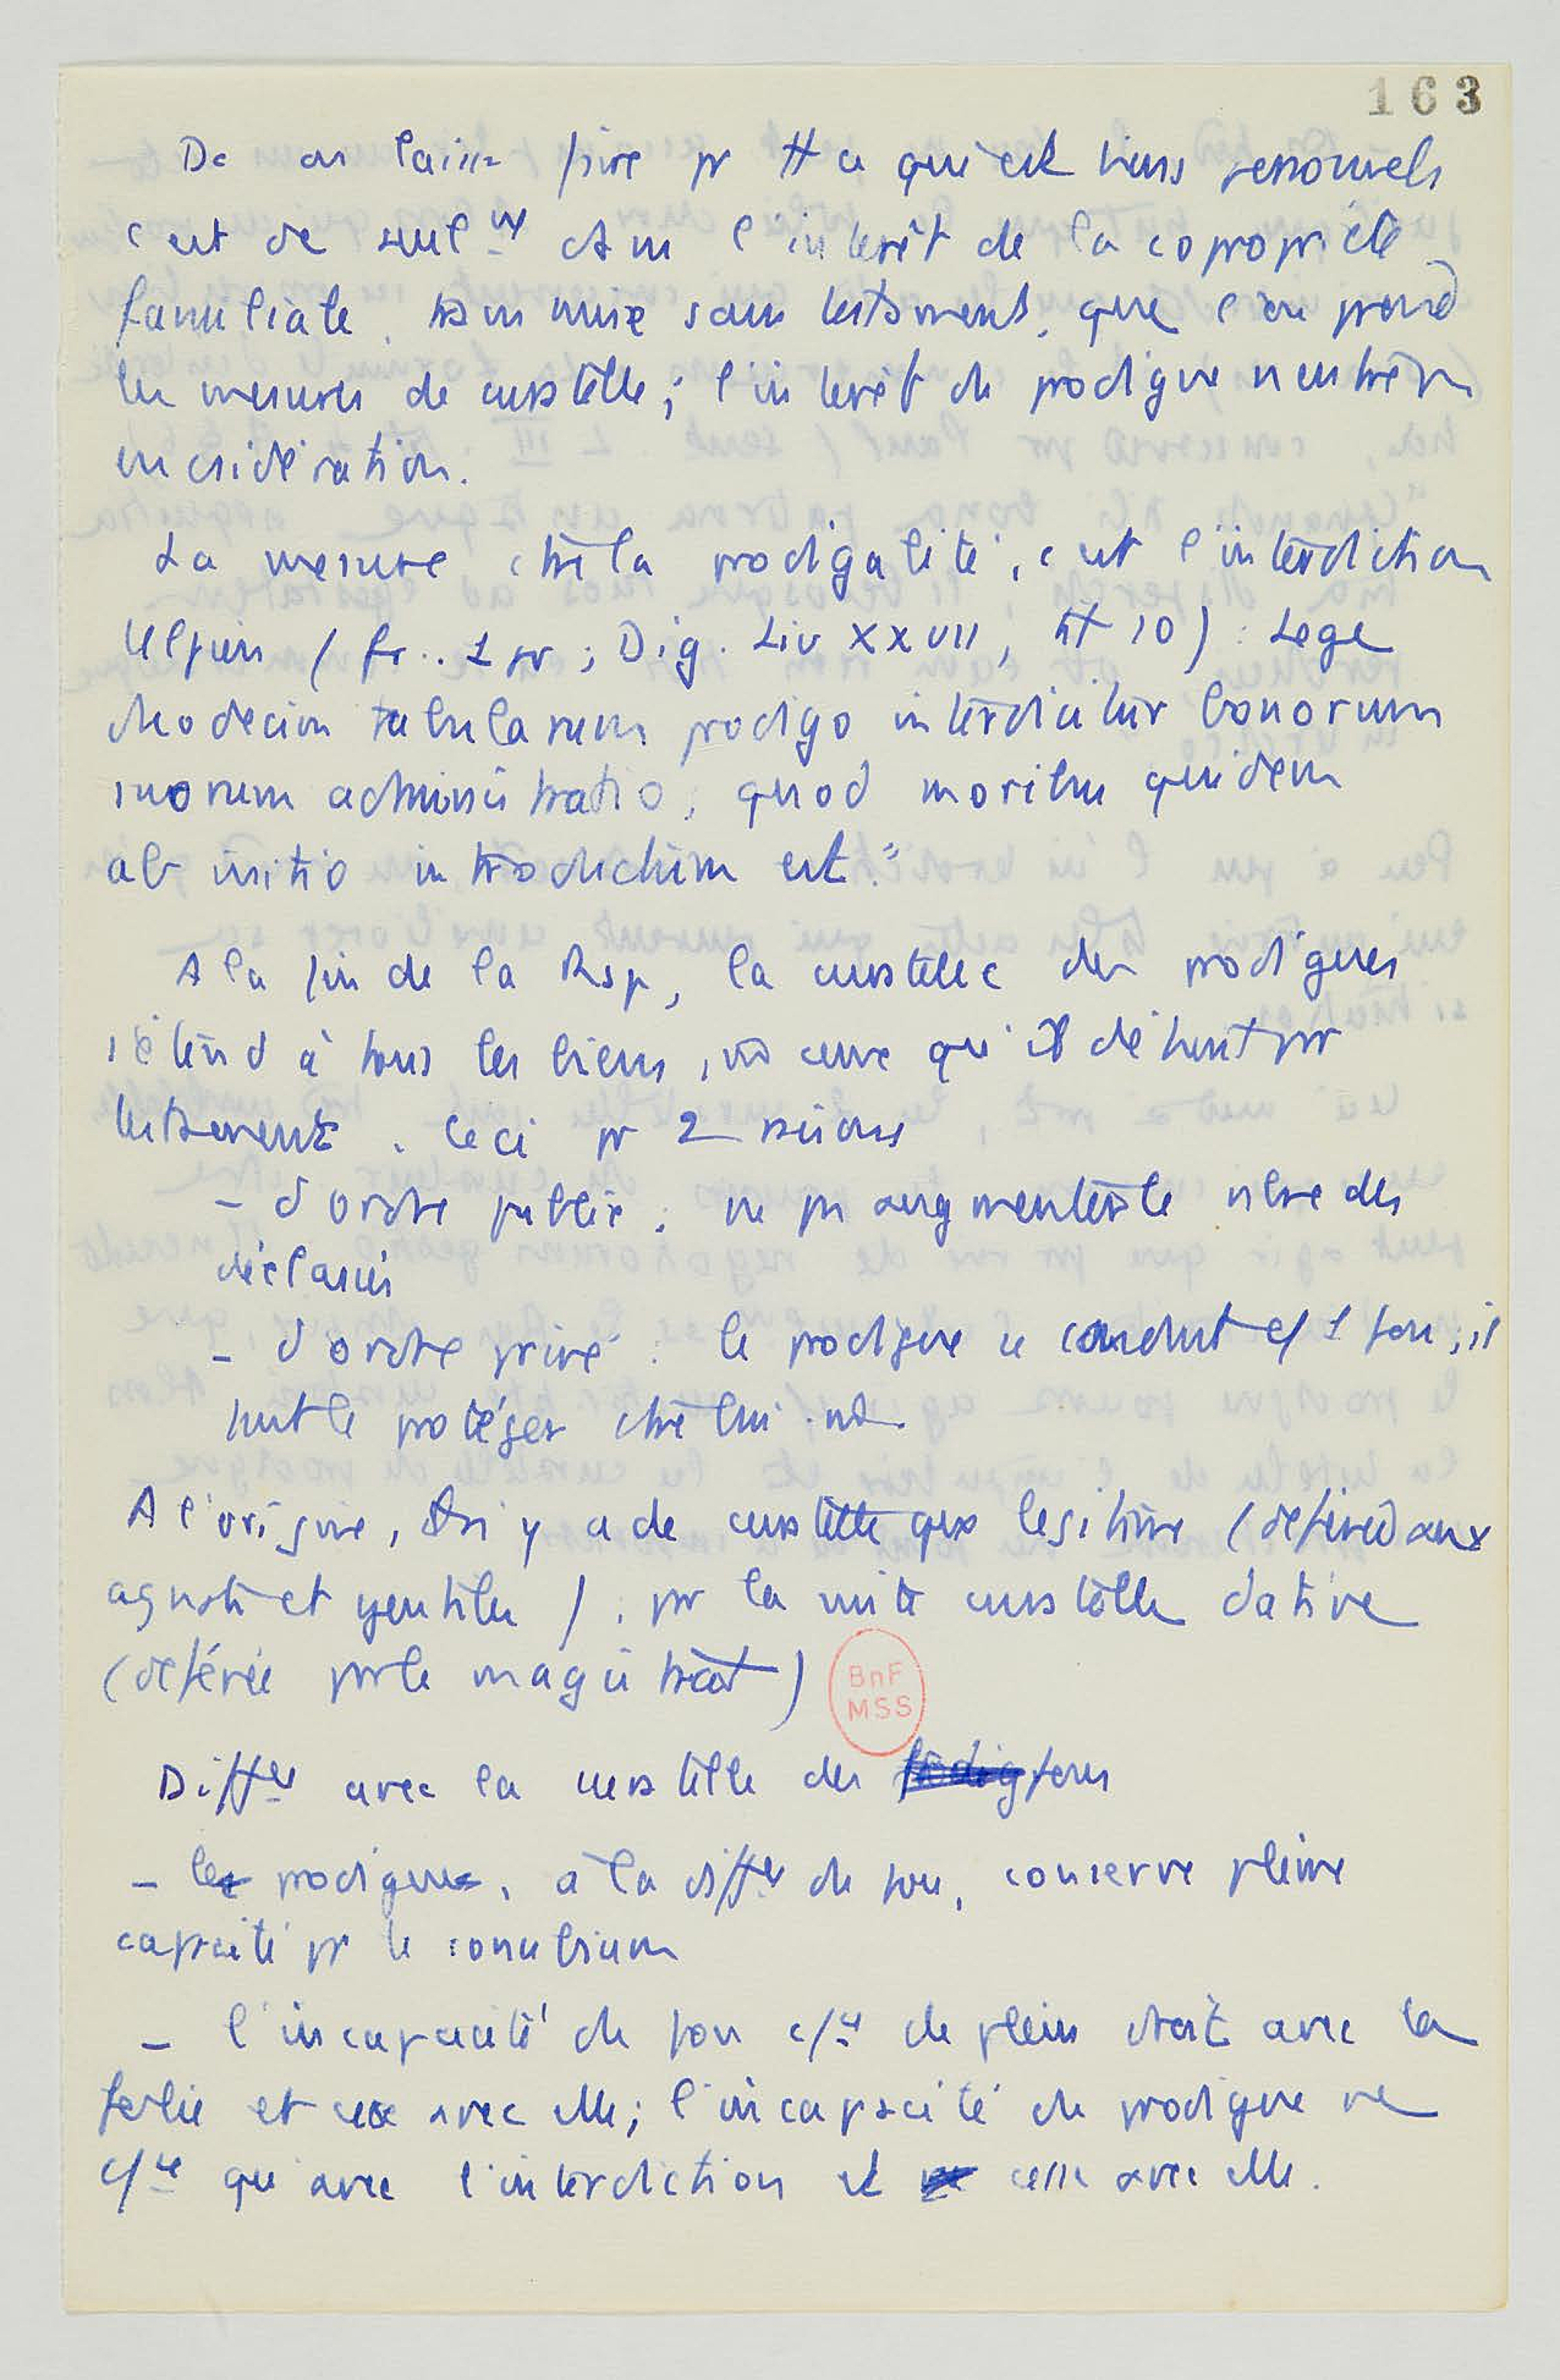 163
Dc on laisse faire pr tt ce qui est biens personnels
c'est de seulnt dans l'intérêt de la copropriété
familiale, transmise sans testament, que l'on prend
les mesures de curatelle; l'intérêt du prodigue n'entre pas
en csidération.
La mesure ctre la prodigalité, c'est l'interdiction
Ulpien (fr. 1 pr; Dig. Liv XXVII, tit 10) : Lege
duodecim tabularum prodigo interdicitur bonorum
suorum administratio, quod moribus quidem
ab initio introductum est."
A la fin de la Rép, la curatelle des prodigues
s'étend à tous les biens, mê ceux qu'il détient par
testament. Ceci pr 2 raisons
- d'ordre public : ne pas augmenter le nbre des
déclassés
- d'ordre privé : le prodigue se conduit c/ 1 fou; il
faut le protéger ctre lui-mê.
A l'origine, il n'y a de curatelle que légitime (déférée aux
agnats et gentiles), pr la suite curatelle dative
(déférée par le magistrat)
BnF
MSS
Diffce avec la curatelle des fous
- le prodigue, à la diffce du fou, conserve pleine
capacité pr le conubium
- l'incapacité du fou c/ce de plein droit avec la
folie et cesse avec elle; l'incapacité du prodigue ne
c/ce qu'avec l'interdiction et cesse avec elle.